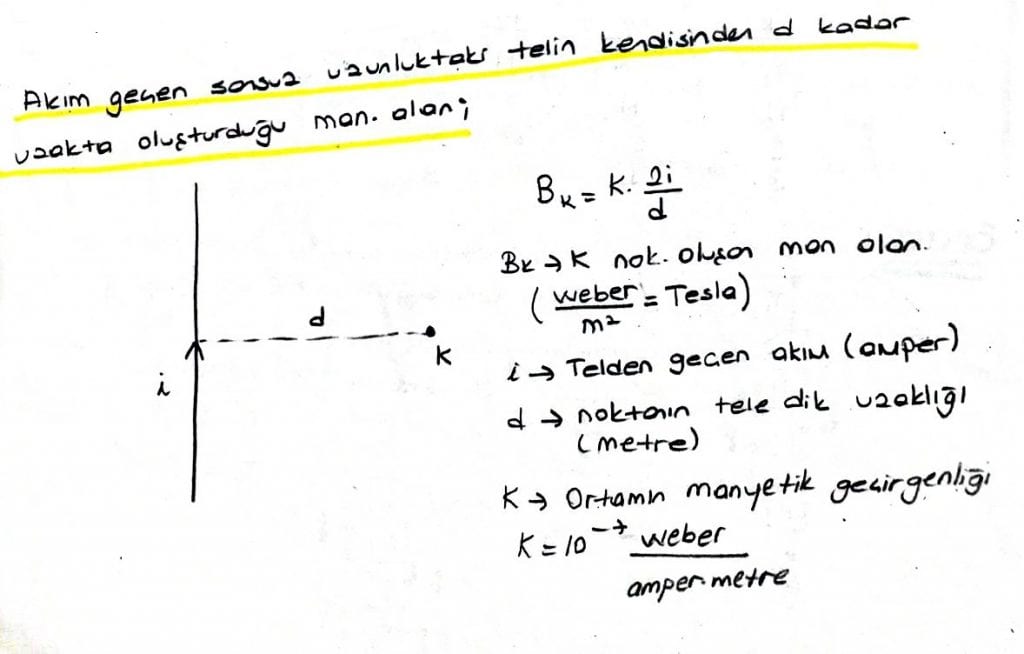 Akım geçen sonsuz uzunluktaki telin kendisinden d kadar
uzakta oluşturduğu man. alan;
B_K = K. 2i/d
BK → K nok. oluşan man alan.
(weber/m² = Tesla)
d
K
i
i → Telden geçen akım (amper)
d → noktanın tele dik uzaklığı
(metre)
K → Ortamın manyetik geçirgenliği
K = 10⁻⁷ weber/amper.metre